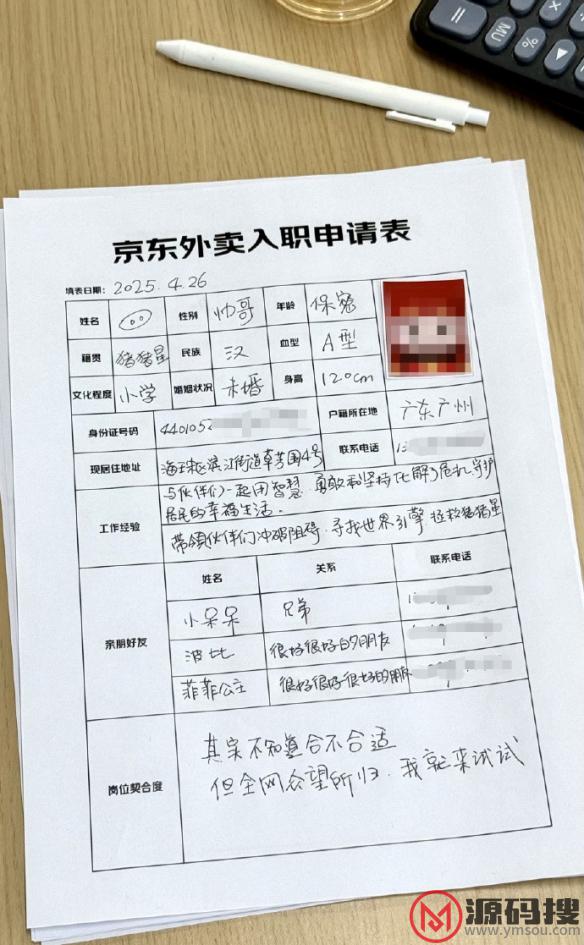 京东外卖入职申请表
填表日期：2025.4.26
姓名 性别 帅哥 年龄 保密
籍贯 猪猪星 民族 汉 血型 A型
文化程度 小学 婚姻状况 未婚 身高 120cm
身份证号码 440105 户籍所在地 广东广州
现居住地址 海珠区滨江街道草芳围4号 联系电话 1
工作经验
与伙伴们一起用智慧、勇敢和坚持化解了危机,守护
居民的幸福生活。
带领伙伴们冲破阻碍、寻找世界引擎、拯救猪猪星
亲朋好友
姓名 关系 联系电话
小呆呆 兄弟 1
波比 很好很好的朋友
菲菲公主 很好很好很好的朋友
岗位契合度
其实不知道合不合适
但全网众望所归、我就来试试
MU
源码搜
www.ymsou.com